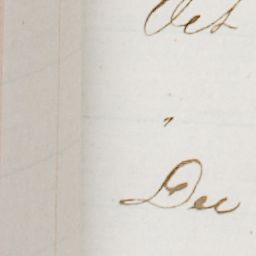 Oct
"
Dec